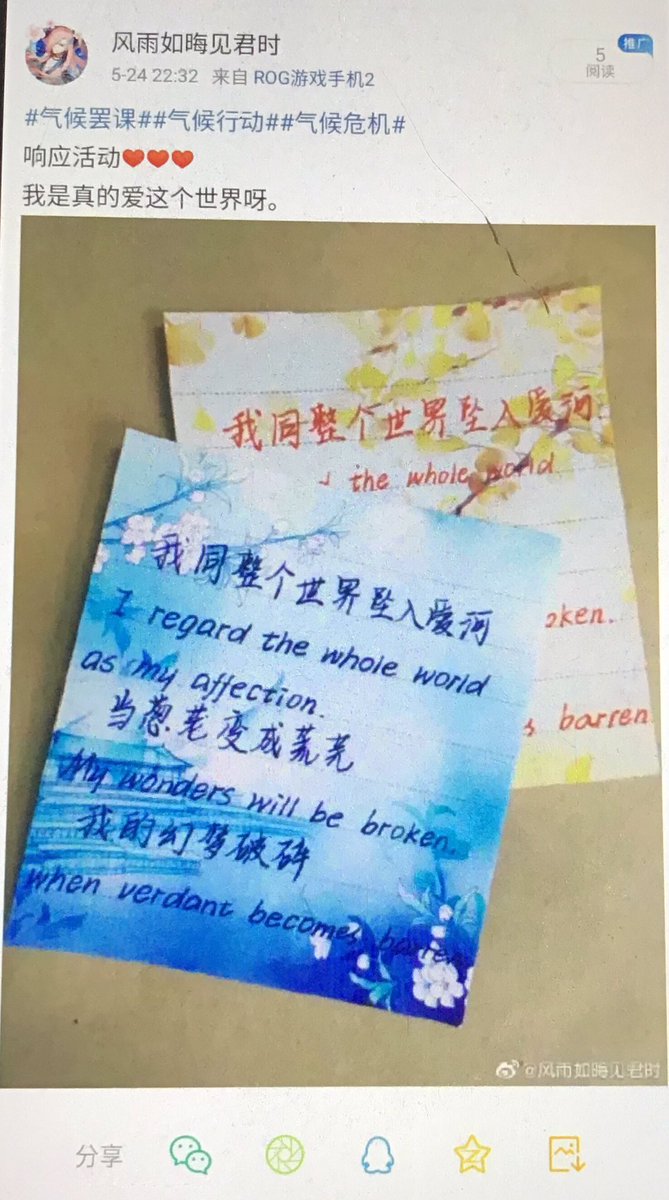 风雨如晦见君时
5-24 22:32 来自 ROG游戏手机2
5
阅读
推广
#气候罢课##气候行动##气候危机#
响应活动❤❤❤
我是真的爱这个世界呀。
我同整个世界坠入爱河
the whole world
oken.
s barren
我同整个世界坠入爱河
I regard the whole world
as my affection.
当葱茏变成荒芜
My wonders will be broken.
我的幻梦破碎
when verdant becomes barren
@风雨如晦见君时
分享